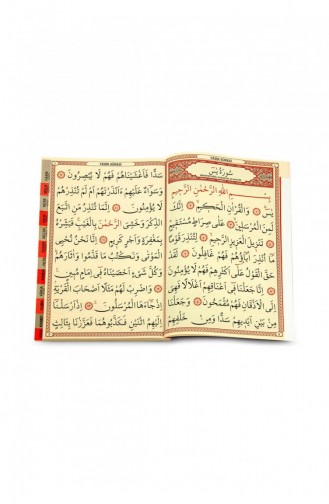 YÂSİN SÛRESİ
سُورَةُ يٰسٓ
بِسْمِ اللّٰهِ الرَّحْمٰنِ الرَّحِيمِ
يٰسٓ وَالْقُرْاٰنِ الْحَكِيمِ اِنَّكَ
لَمِنَ الْمُرْسَلِينَ عَلٰى صِرَاطٍ مُسْتَقِيمٍ
تَنْزِيلَ الْعَزِيزِ الرَّحِيمِ لِتُنْذِرَ قَوْمًا
مَا اُنْذِرَ اٰبَاؤُهُمْ فَهُمْ غَافِلُونَ لَقَدْ
حَقَّ الْقَوْلُ عَلٰى اَكْثَرِهِمْ فَهُمْ لَا يُؤْمِنُونَ
اِنَّا جَعَلْنَا فِى اَعْنَاقِهِمْ اَغْلَالًا فَهِىَ
اِلَى الْاَذْقَانِ فَهُمْ مُقْمَحُونَ وَجَعَلْنَا
مِنْ بَيْنِ اَيْدِيهِمْ سَدًّا وَمِنْ خَلْفِهِمْ
YÂSİN SÛRESİ
سَدًّا فَاَغْشَيْنَاهُمْ فَهُمْ لَا يُبْصِرُونَ
وَسَوَاءٌ عَلَيْهِمْ ءَاَنْذَرْتَهُمْ اَمْ لَمْ تُنْذِرْهُمْ
لَا يُؤْمِنُونَ اِنَّمَا تُنْذِرُ مَنِ اتَّبَعَ
الذِّكْرَ وَخَشِىَ الرَّحْمٰنَ بِالْغَيْبِ فَبَشِّرْهُ
بِمَغْفِرَةٍ وَاَجْرٍ كَرِيمٍ اِنَّا نَحْنُ نُحْيِى
الْمَوْتٰى وَنَكْتُبُ مَا قَدَّمُوا وَاٰثَارَهُمْ
وَكُلَّ شَىْءٍ اَحْصَيْنَاهُ فِى اِمَامٍ مُبِينٍ
وَاضْرِبْ لَهُمْ مَثَلًا اَصْحَابَ الْقَرْيَةِ
اِذْ جَاءَهَا الْمُرْسَلُونَ اِذْ اَرْسَلْنَا
اِلَيْهِمُ اثْنَيْنِ فَكَذَّبُوهُمَا فَعَزَّزْنَا بِثَالِثٍ